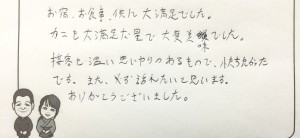 お宿、お食事、供に大満足でした。
カニも大満足な量で大変美味でした。
接客も温い思いやりのあるもので、快ちよかった
です。また、必ず訪れたいと思います。
ありがとうございました。